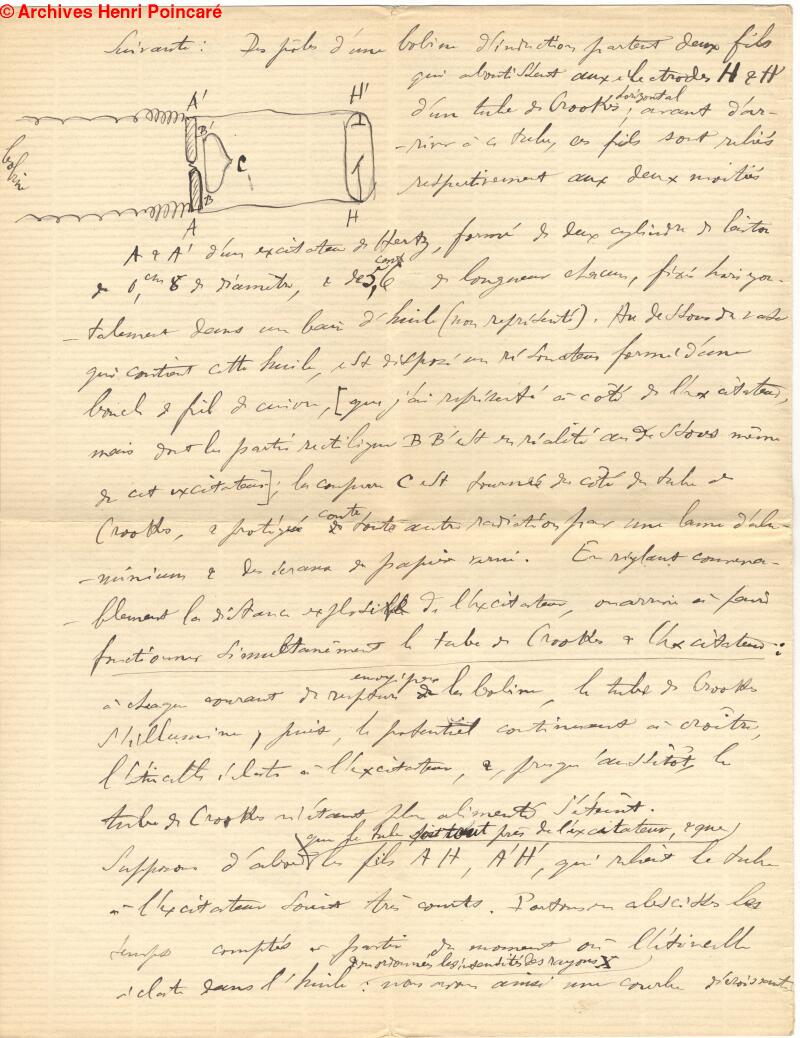 © Archives Henri Poincaré
Suivante : Des pôles d'une bobine d'induction partent deux fils
qui aboutissent aux électrodes H & H'
d'un tube de Crookes, horizontal ; avant d'ar-
-river à ce tube, ces fils sont reliés
respectivement aux deux moitiés
A'
H'
B'
C
bobine
B
A
H
A & A' d'un excitateur de Hertz, formé de deux cylindres de laiton
de 0,cm 8 de diamètre, & de 5,6 cent de longueur chacun, fixés horizon-
-talement dans un bain d'huile (non représenté). Au dessous du vase
qui contient cette huile, est disposé un résonateur formé d'une
boucle de fil de cuivre, [que j'ai représenté à côté de l'excitateur,
mais dont la partie rectiligne BB' est en réalité au dessous même
de cet excitateur] ; la coupure C est tournée du côté du tube de
Crookes, & protégée contre toute autre radiation par une lame d'alu-
-minium & des écrans de papier verni. En réglant convena-
-blement la distance explosive de l'excitateur, on arrive à faire
fonctionner simultanément le tube de Crookes & l'excitateur :
à chaque courant de rupture envoyé par la bobine, le tube de Crookes
s'illumine, puis, le potentiel continuant à croître,
l'étincelle éclate à l'excitateur, &, presqu'aussitôt, le
tube de Crookes n'étant plus alimenté s'éteint.
que le tube soit tout près de l'excitateur, & que
Supposons d'abord les fils AH, A'H', qui relient le tube
à l'excitateur soient très courts. Portons en abscisses les
temps comptés à partir du moment où l'étincelle
& en ordonnées les intensités des rayons X
éclate dans l'huile : nous avons ainsi une courbe décroissante